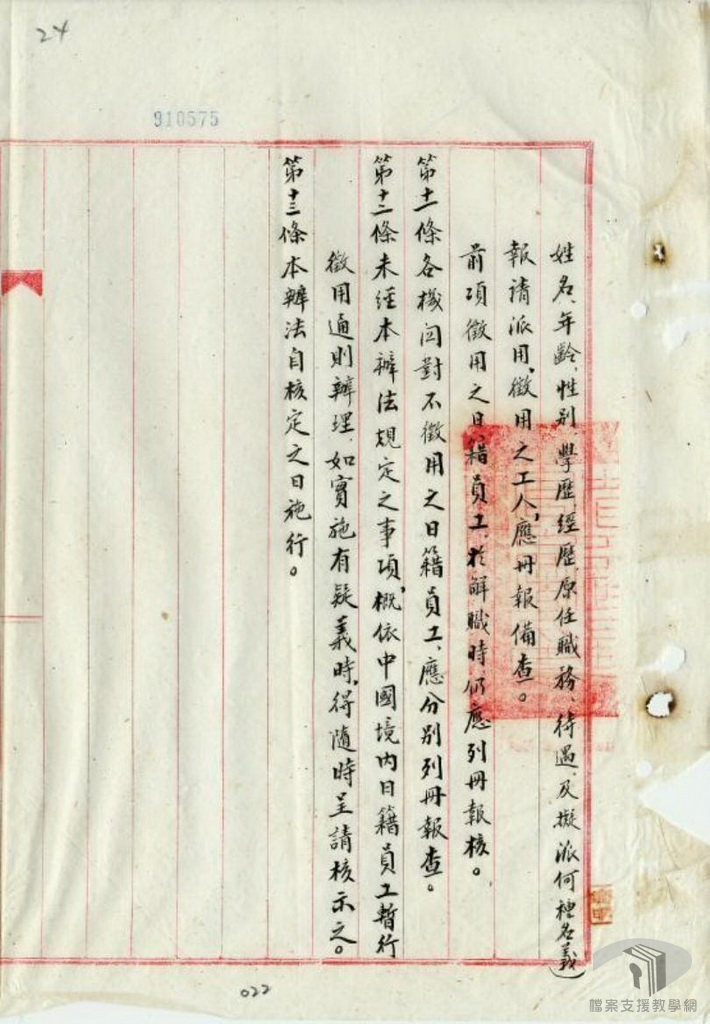 24
910575
姓名、年齡、性別、學歷、經歷、原任職務、待遇、及擬派何種名義)
報請派用、徵用之工人、應冊報備查。
前項徵用之日籍員工、於解職時、仍應列冊報核。
第十一條各機関對不徵用之日籍員工、應分別列冊報查。
第十二條未經本辦法規定之事項、概依中國境內日籍員工暫行
徵用通則辦理、如實施有疑義時、得隨時呈請核示之。
第十三條本辦法自核定之日施行。
022
檔案支援教學網